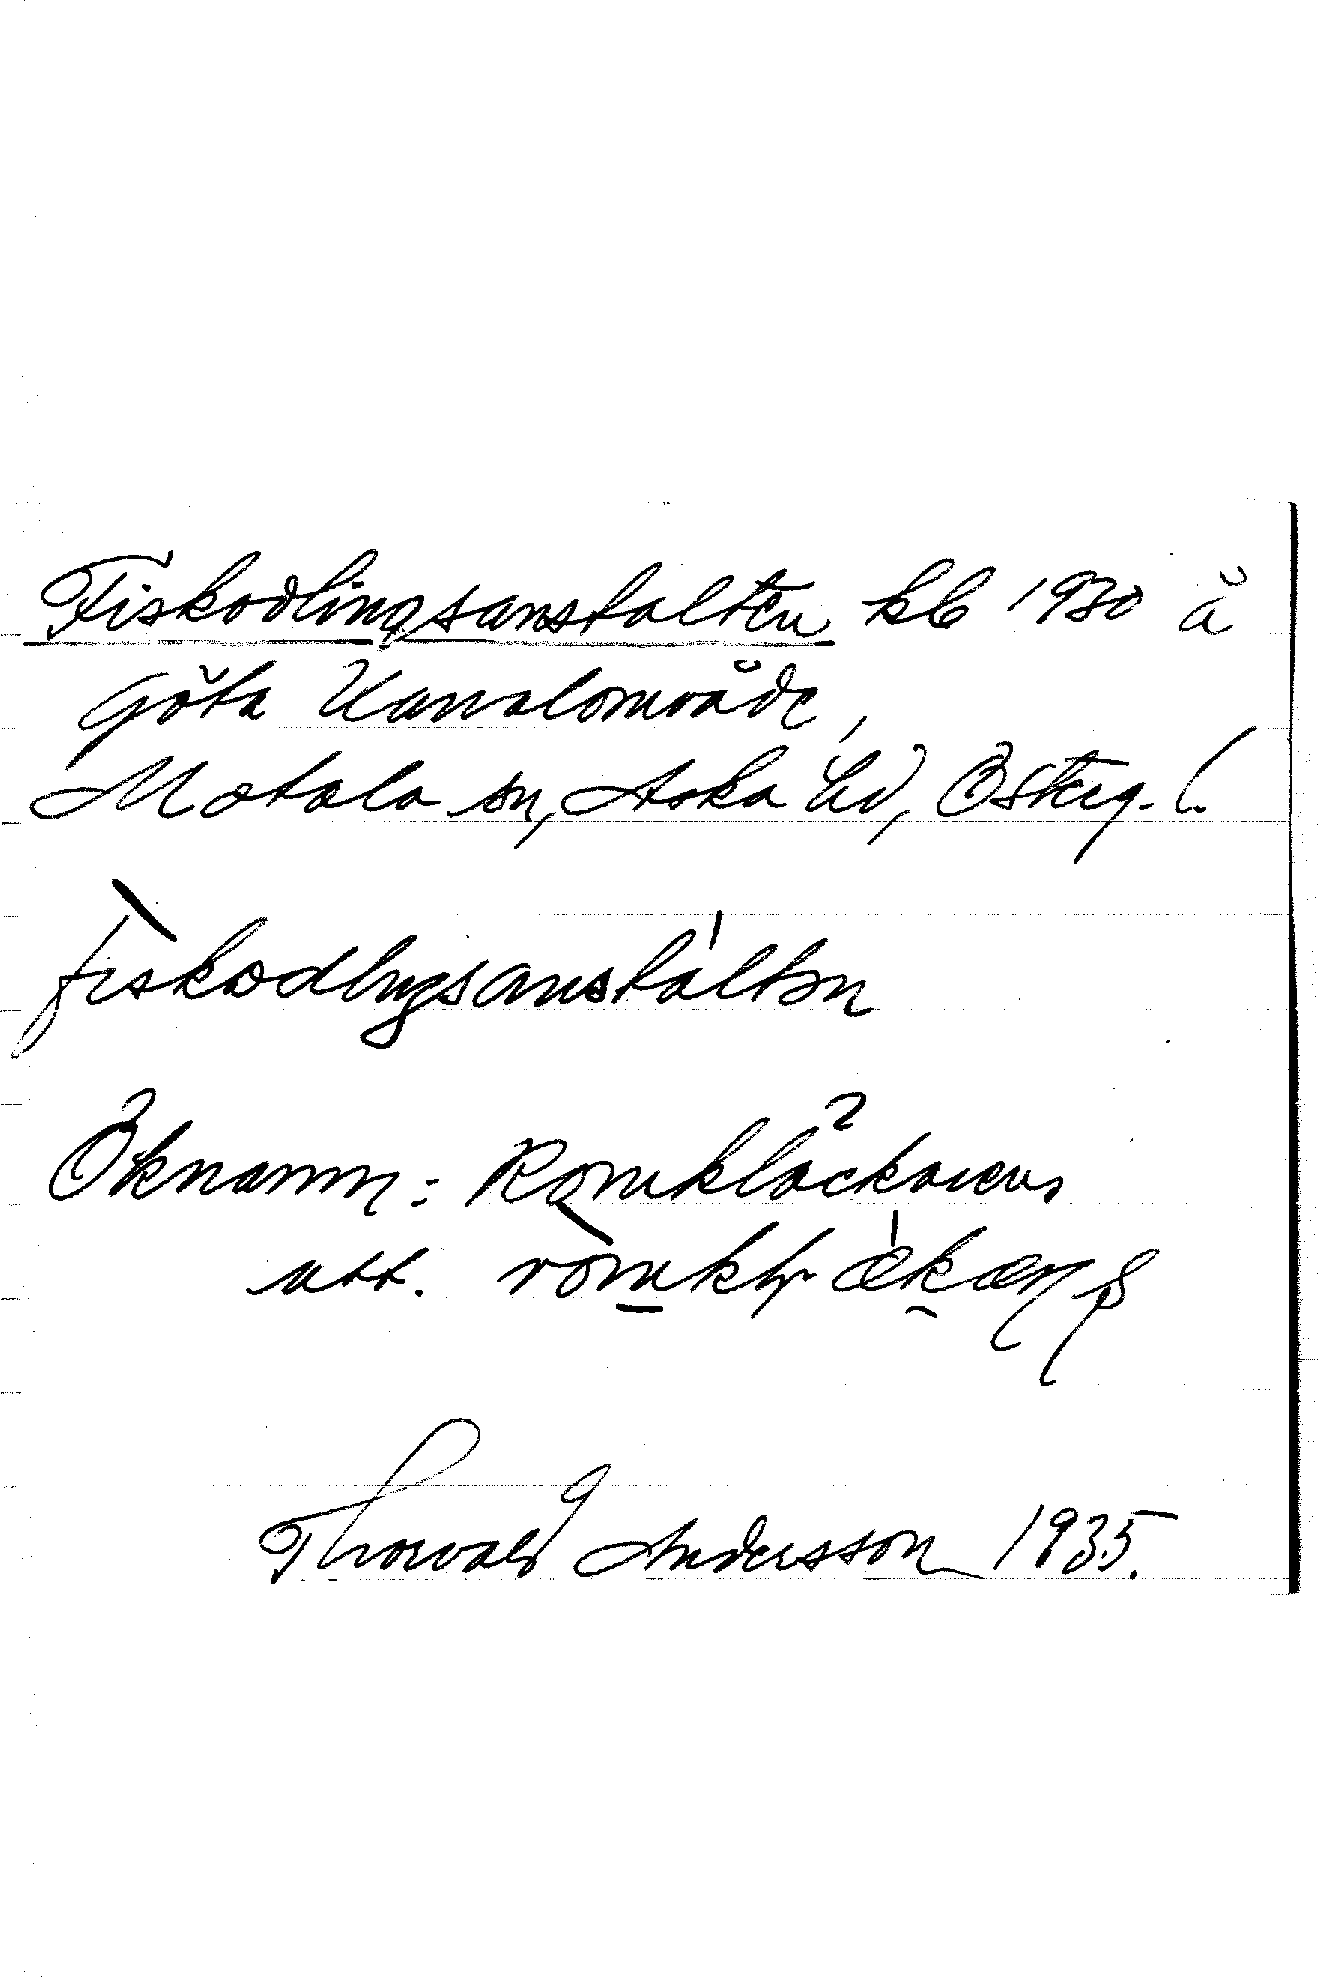 Fiskodlingsanstalten kb 1930 å
Göta Kanalområde,
Motala sn, Aska hd, Österg. l.
fiskodlɩŋsanstáltən
Öknamn: Romkläckarens
utt.
Thorvald Andersson 1935.